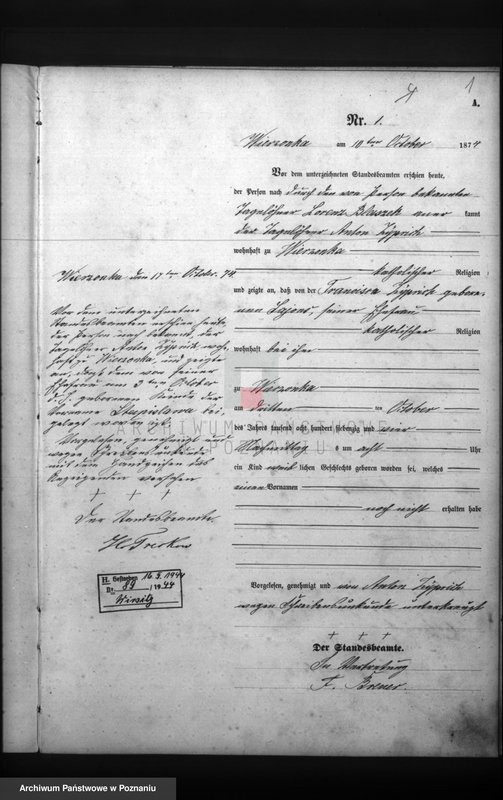 1
A.
Nr. 1.
Wierzonka am 10ten October 1874
Vor dem unterzeichneten Standesbeamten erschien heute,
der Person nach durch den von Person bekannten
Tagelöhner Lorenz kannt
der Tagelöhner Anton
wohnhaft zu Wierzonka
katholischer Religion
und zeigte an, daß von der Francisca geborenen
seiner Ehefrau
katholischer Religion
wohnhaft bei ihm
zu Wierzonka
am dritten ten October
des Jahres tausend acht hundert siebenzig und vier
Nachmittag s um acht Uhr
ein Kind weiblichen Geschlechts geboren worden sei, welches
einen Vornamen
noch nicht erhalten habe
Vorgelesen, genehmigt und von Anton
wegen Schreibensunkunde unterkreuzt
+ + +
Der Standesbeamte.
In Vertretung
F.
Wierzonka den 17ten October 74
Vor dem unterzeichneten
Standesbeamten erschien heute
der Person nach bekannt, der
Tagelöhner Anton
zu Wierzonka, und zeigte
an, daß dem von seiner
Ehefrau am 3ten October
d. J. geborenen Kinde der
Vorname bei-
gelegt worden sei
Vorgelesen, genehmigt und
wegen Schreibensunkunde
mit dem Handzeichen des
versehen
+ + +
Der Standesbeamte.
H. Gestorben 16.3.1944
Nr. 89 / 1944
Wirsitz
ARCHIWUM PAŃSTWOWE
W POZNANIU
Archiwum Państwowe w Poznaniu